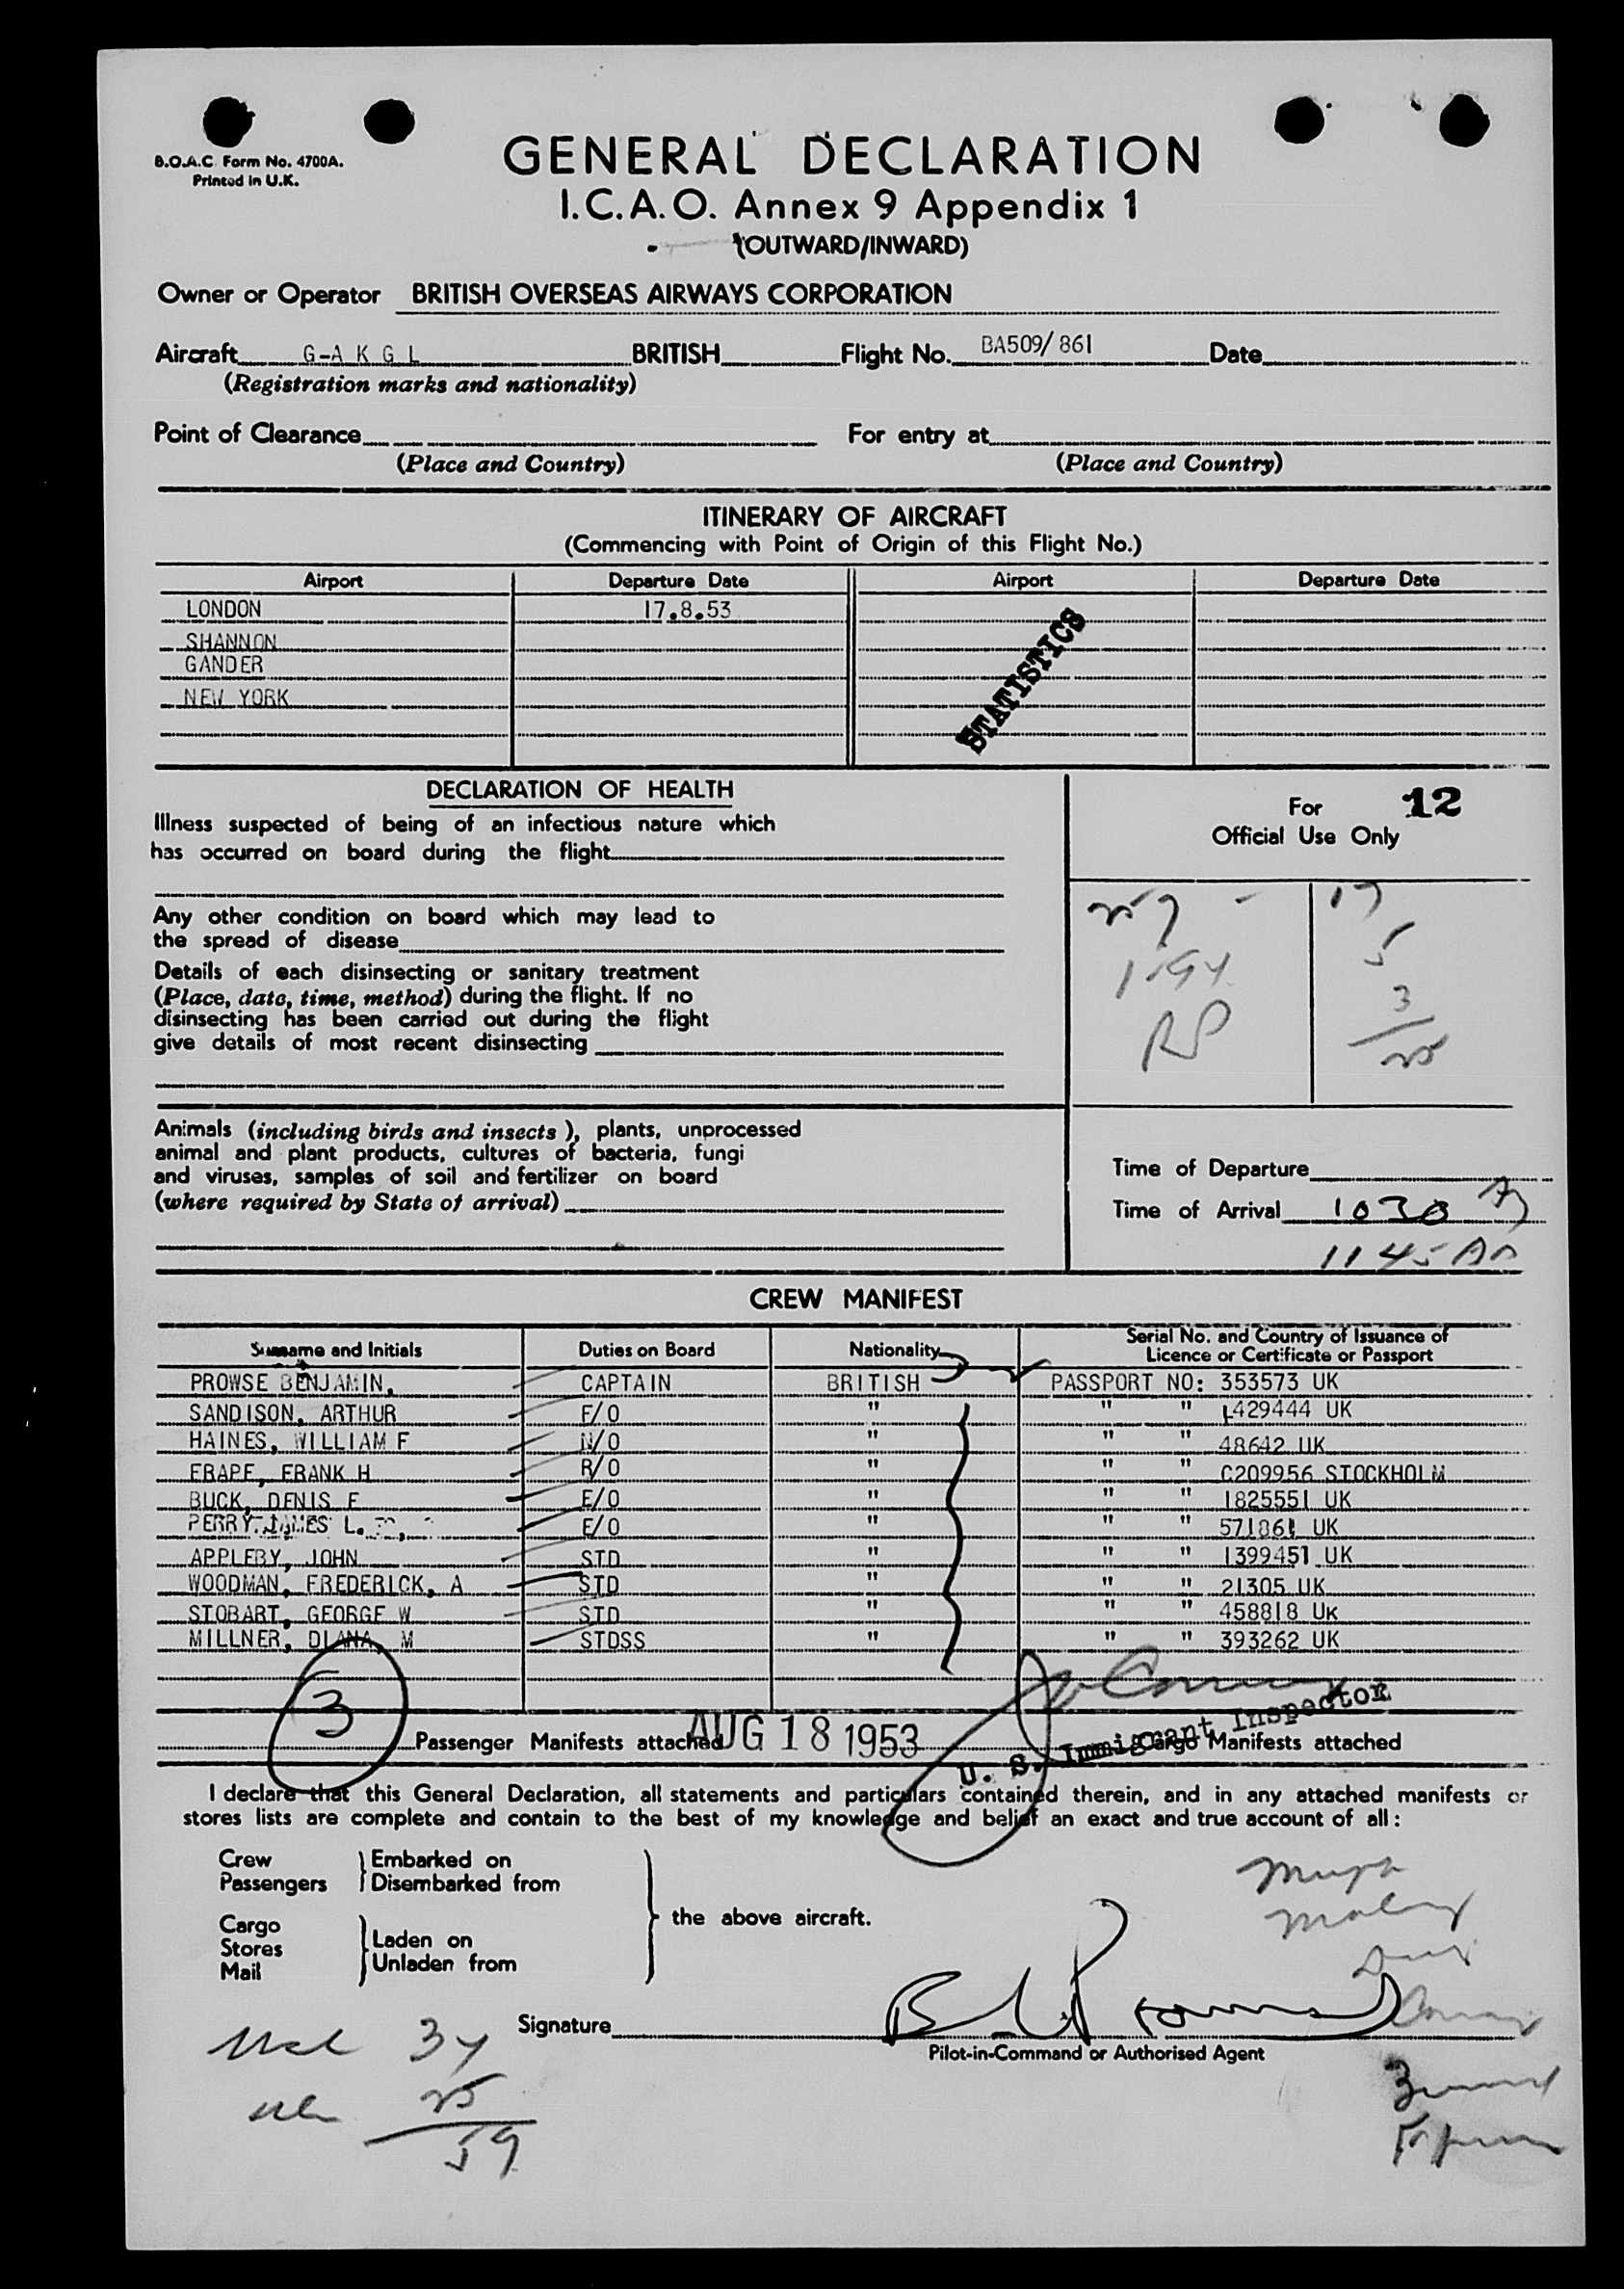 B.O.A.C. Form No. 4700A.
Printed in U.K.
GENERAL DECLARATION
I.C.A.O. Annex 9 Appendix 1
(OUTWARD/INWARD)
Owner or Operator BRITISH OVERSEAS AIRWAYS CORPORATION
Aircraft G-A K G L BRITISH Flight No. BA509/861 Date
(Registration marks and nationality)
Point of Clearance For entry at
(Place and Country) (Place and Country)
ITINERARY OF AIRCRAFT
(Commencing with Point of Origin of this Flight No.)
Airport Departure Date Airport Departure Date
LONDON 17.8.53
SHANNON
GANDER
NEW YORK
STATISTICS
DECLARATION OF HEALTH
Illness suspected of being of an infectious nature which
has occurred on board during the flight
Any other condition on board which may lead to
the spread of disease
Details of each disinsecting or sanitary treatment
(Place, date, time, method) during the flight. If no
disinsecting has been carried out during the flight
give details of most recent disinsecting
For 12
Official Use Only
17
5
3
25
Animals (including birds and insects), plants, unprocessed
animal and plant products, cultures of bacteria, fungi
and viruses, samples of soil and fertilizer on board
(where required by State of arrival)
Time of Departure
Time of Arrival 1030
1145
CREW MANIFEST
Surname and Initials Duties on Board Nationality Serial No. and Country of Issuance of
Licence or Certificate or Passport
PROWSE BENJAMIN, CAPTAIN BRITISH PASSPORT NO: 353573 UK
SANDISON, ARTHUR F/O " " " L429444 UK
HAINES, WILLIAM F N/O " " " 48642 UK
FRAPE, FRANK H R/O " " " C209956 STOCKHOLM
BUCK, DENIS F E/O " " " 1825551 UK
PERRY, JAMES L. E/O " " " 571861 UK
APPLEBY, JOHN STD " " " 1399451 UK
WOODMAN, FREDERICK, A STD " " " 21305 UK
STOBART, GEORGE W STD " " " 458818 UK
MILLNER, DIANA, M STDSS " " " 393262 UK
3 Passenger Manifests attached AUG 18 1953 Cargo Manifests attached
U. S. Immigrant Inspector
I declare that this General Declaration, all statements and particulars contained therein, and in any attached manifests or
stores lists are complete and contain to the best of my knowledge and belief an exact and true account of all:
Crew Embarked on
Passengers Disembarked from
the above aircraft.
Cargo
Stores Laden on
Mail Unladen from
Signature
Pilot-in-Command or Authorised Agent
34
25
59